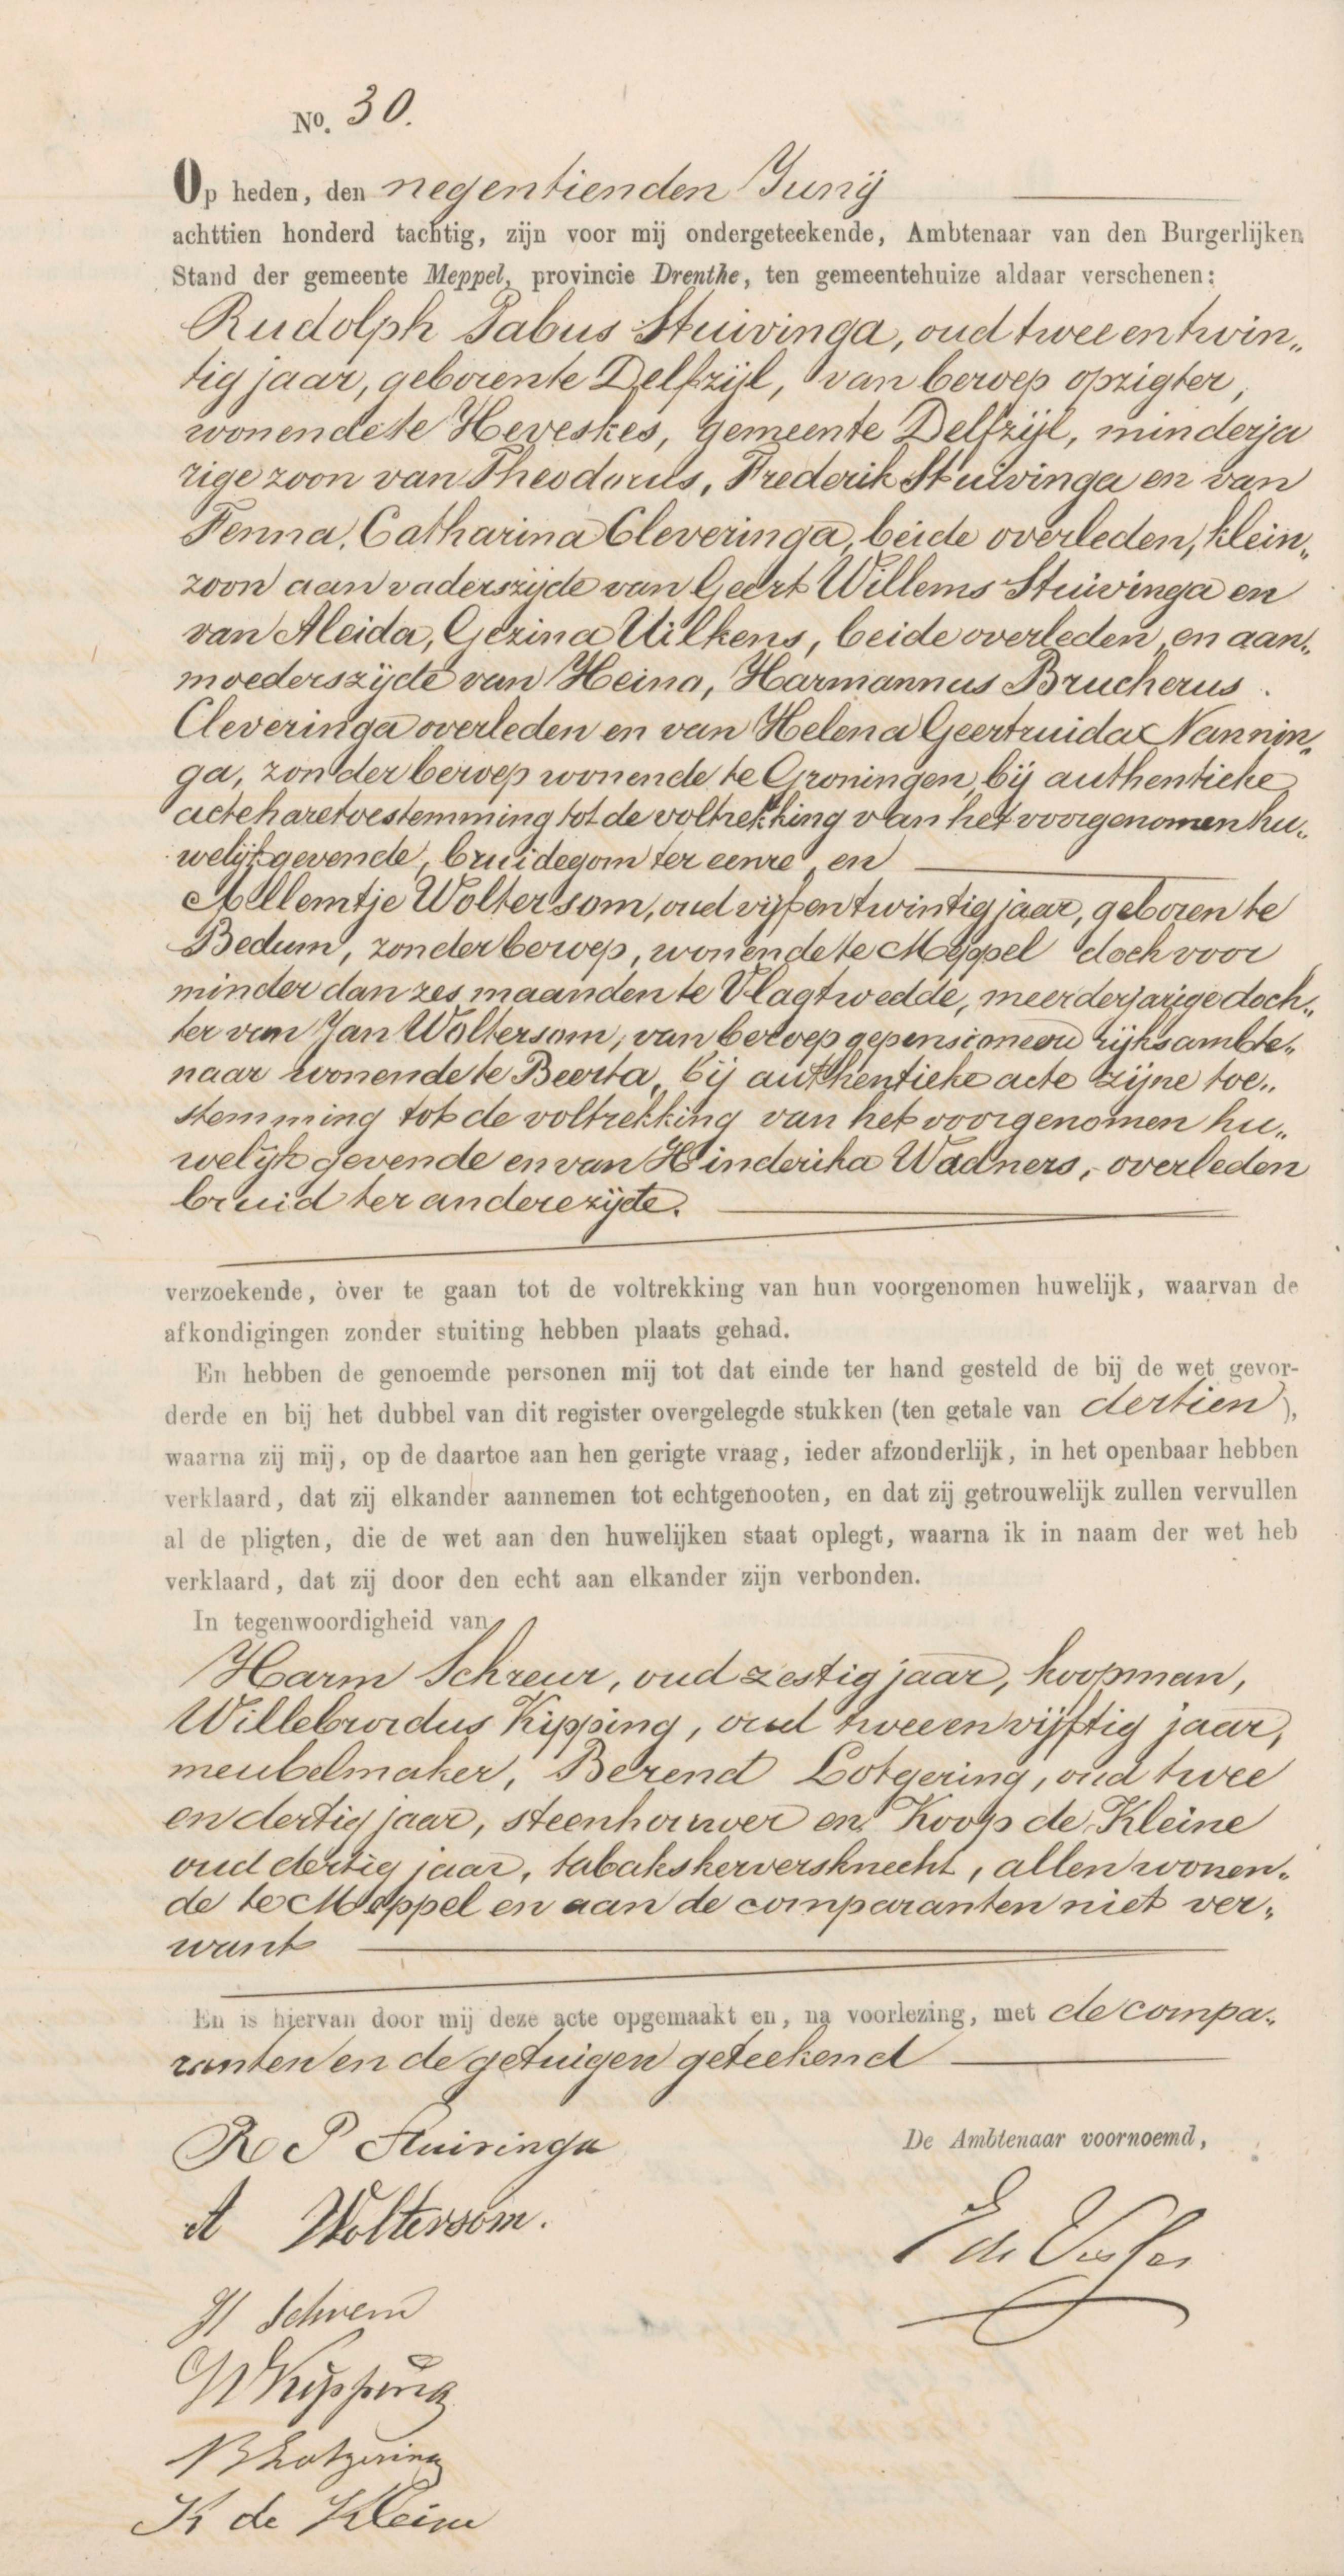 No. 30.
Op heden, den negentienden Junij
achttien honderd tachtig, zijn voor mij ondergeteekende, Ambtenaar van den Burgerlijken
Stand der gemeente Meppel, provincie Drenthe, ten gemeentehuize aldaar verschenen:
Rudolph Pabus Stuivinga, oud twee en twin„
tig jaar, geboren te Delfzijl, van beroep opzigter,
wonende te Heveskes, gemeente Delfzijl, minderja
rige zoon van Theodorus, Frederik Stuivinga en van
Fenna, Catharina Cleveringa, beide overleden, klein„
zoon aan vaderszijde van Geert Willems Stuivinga en
van Aleida, Gezina Uilkens, beide overleden, en aan„
moederszijde van Heino, Harmannus Brucherus
Cleveringa overleden en van Helena Geertruida Nannin„
ga, zonder beroep wonende te Groningen, bij authentieke
acte hare toestemming tot de voltrekking van het voorgenomen hu„
welijk gevende, bruidegom ter eenre, en
Allemtje Woltersom, oud vijf en twintig jaar, geboren te
Bedum, zonder beroep, wonende te Meppel doch voor
minder dan zes maanden te Vlagtwedde, meerderjarige doch„
ter van Jan Woltersom, van beroep gepensioneerd rijksambte„
naar wonende te Beerta, bij authentieke acte zijne toe„
stemming tot de voltrekking van het voorgenomen hu„
welijk gevende en van Hinderika Wadners, overleden
bruid ter andere zijde.
verzoekende, over te gaan tot de voltrekking van hun voorgenomen huwelijk, waarvan de
afkondigingen zonder stuiting hebben plaats gehad.
En hebben de genoemde personen mij tot dat einde ter hand gesteld de bij de wet gevor-
derde en bij het dubbel van dit register overgelegde stukken (ten getale van dertien),
waarna zij mij, op de daartoe aan hen gerigte vraag, ieder afzonderlijk, in het openbaar hebben
verklaard, dat zij elkander aannemen tot echtgenooten, en dat zij getrouwelijk zullen vervullen
al de pligten, die de wet aan den huwelijken staat oplegt, waarna ik in naam der wet heb
verklaard, dat zij door den echt aan elkander zijn verbonden.
In tegenwoordigheid van
Harm Schreur, oud zestig jaar, koopman,
Willebrordus Kipping, oud twee en vijftig jaar,
meubelmaker, Berend Lotgering, oud twee
en dertig jaar, steenhouwer en Koop de Kleine
oud dertig jaar, tabakskerversknecht, allen wonen„
de te Meppel en aan de comparanten niet ver„
want
En is hiervan door mij deze acte opgemaakt en, na voorlezing, met de compa„
ranten en de getuigen geteekend
R P Stuivinga
De Ambtenaar voornoemd,
A Woltersom.
H Schreur
W Kipping
B Lotgering
K de Kleine